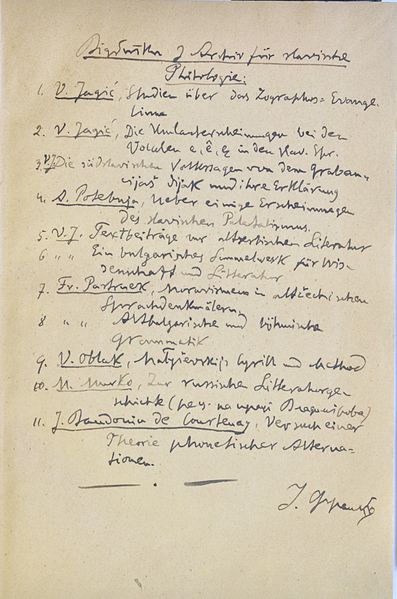 Відбитки з Archiv für slavische
Philologie:
1. V. Jagić, Studien über das Zographos-Evange-
lium
2. V. Jagić, Die Umlauterscheinungen bei den
Vokalen e, ê, ę in den slav. Spr.
3. V.J. Die südslavischen Volkssagen von dem Graban-
cijaš dijak und ihre Erklärung
4. A. Potebnja, Ueber einige Erscheinungen
des slavischen Palatalismus.
5. V.J. Textbeiträge zur altserbischen Literatur
6 " " Ein bulgarisches Sammelwerk für Wis-
senschaft und Litteratur
7. Fr. Pastrnek, in altčechischen
Sprachdenkmälern
8 " " Altbulgarische und böhmische
Grammatik
9. V. Oblak, Cyrill und Method
10. M. Murko, Zur russischen Litteraturge-
schichte (рец. на праці)
11. J. Baudouin de Courtenay, Versuch einer
Theorie phonetischer Alterna-
tionen.